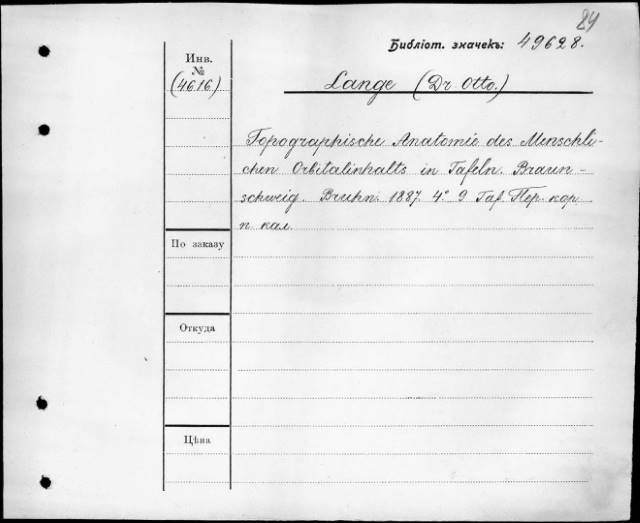 84
Библіот. значекъ: 49628.
Инв.
№
(4616.)
Lange (Dr. Otto.)
Topographische Anatomie des Menschli-
chen Orbitalinhalts in Tafeln. Braun-
schweig. Bruhn. 1887. 4º 9 Taf. Пер. кор.
п кал.
По заказу
Откуда
Цѣна